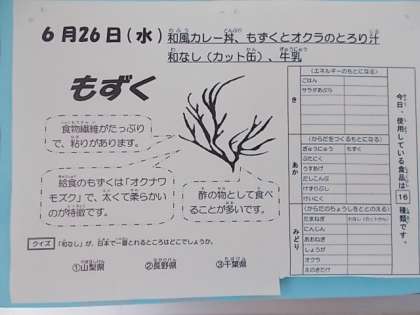 6月26日(水) 和風カレー丼、もずくとオクラのとろり汁
和なし(カット缶)、牛乳
もずく
食物繊維がたっぷり
で、粘りがあります。
給食のもずくは「オクナワ
モズク」で、太くて柔らかい
のが特徴です。
酢の物として食べ
ることが多いです。
クイズ 「和なし」が、日本で一番とれるところはどこでしょうか。
①山梨県 ②長野県 ③千葉県
き
(エネルギーのもとになる)
ごはん
サラダあぶら
あか
(からだをつくるもとになる)
ぎゅうにゅう もずく
ぶたにく
うすあげ
だしこんぶ
けずりぶし
けいにく
みどり
(からだのちょうしをととのえる)
たまねぎ 和なし(カットかん)
にんじん
あおねぎ
しょうが
オクラ
えのきたけ
今日、使用している食品は
16
種類です。